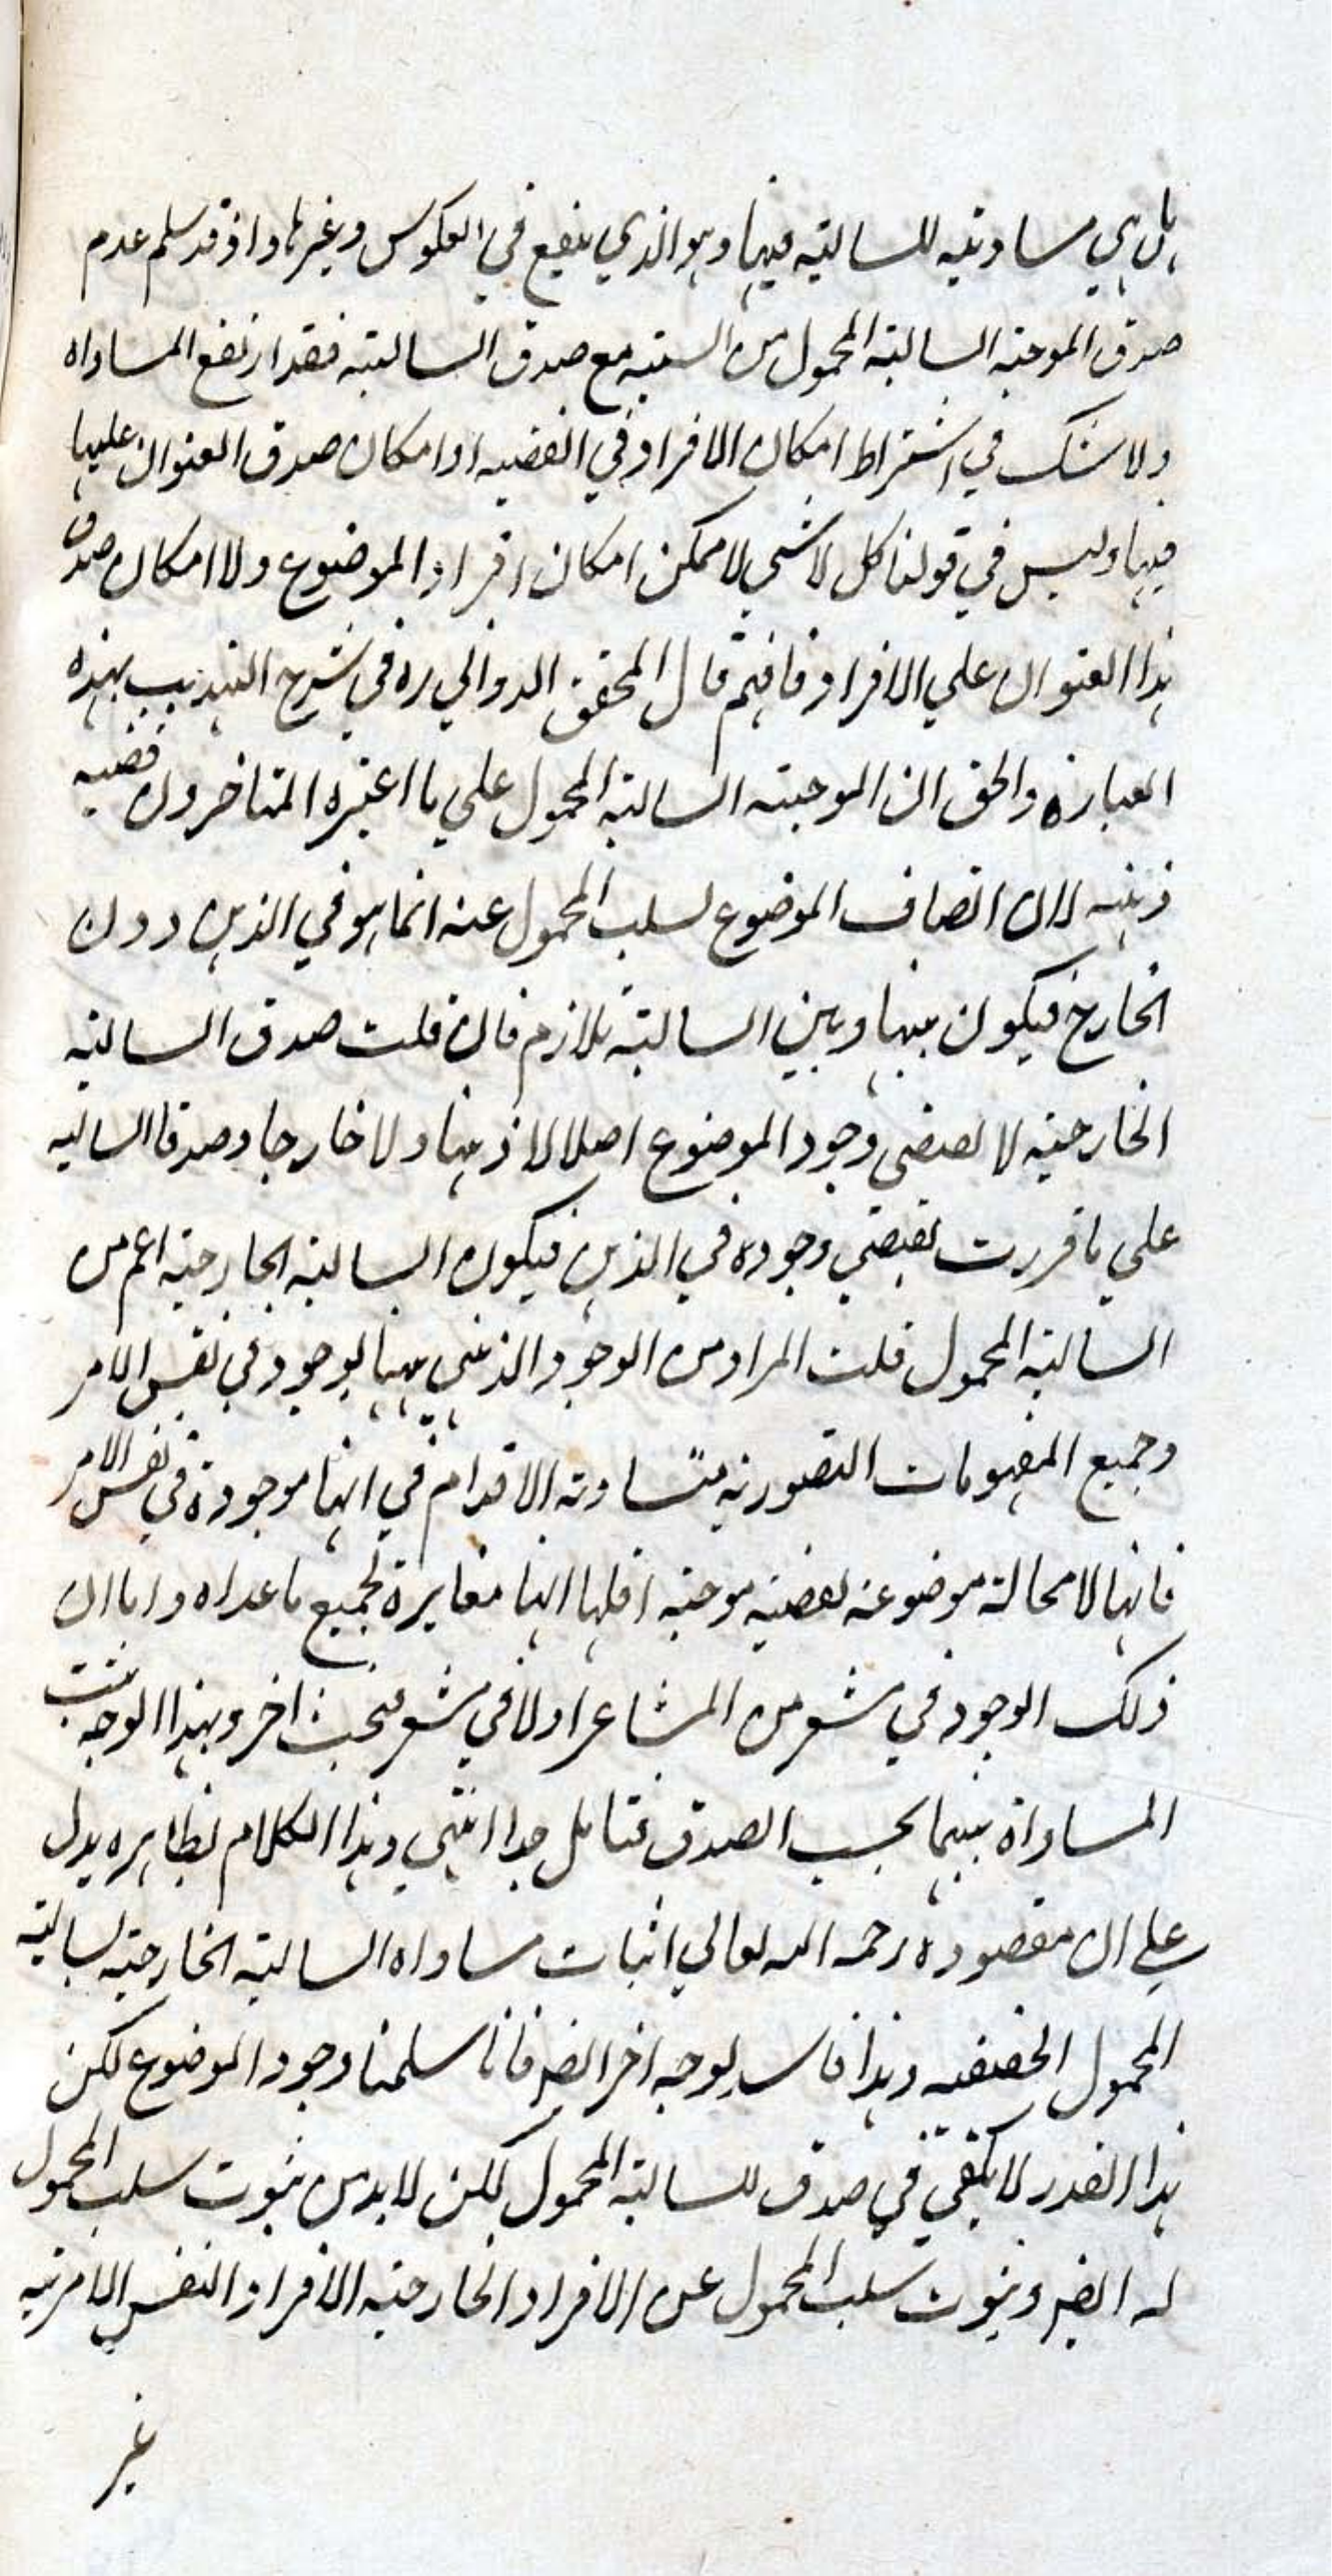 بل هي مساوية للسالبة فيها وهو الذي ينفع في العكوس وغيرها واذ قد سلم عدم
صدق الموجبة السالبة المحمول من السته مع صدق السالبة فقد ارتفع المساواه
ولا شك في اشتراط امكان الافراد في القضيه او امكان صدق العنوان عليها
فيها وليس في قولنا كل لا شي لا ممكن امكان افراد الموضوع ولا امكان صدق
هذا العنوان علي الافراد فافهم قال المحقق الدواني ره في شرح التهذيب بهذه
العبارة والحق ان الموجبته السالبة المحمول علي ما اعتبره المتاخرون قضيه
ذهنيه لان اتصاف الموضوع لسلب المحمول عنه انما هو في الذهن دون
الخارج فيكون بينها وبين السالبة تلازم فان قلت صدق السالبة
الخارجيه لا يقتضي وجود الموضوع اصلا لا ذهنا ولا خارجا وصدقا السالبه
علي ما قررت يقتضي وجوده في الذهن فيكون السالبة الخارجية اعم من
السالبة المحمول قلت المراد من الوجود الذهني ههنا الوجود في نفس الامر
وجميع المفهومات التصورية متساوية الاقدام في انها موجودة في نفس الامر
فانها لا محالة موضوعة لقضية موجبة اقلها انها مغايرة لجميع ما عداه واما ان
ذلك الوجود في مشعر من المشاعر اولا في مشعر فبحث اخر وبهذا الوجه يثبت
المساواة بينهما بحسب الصدق فتامل جدا انتهي وهذا الكلام بظاهره يدل
علي ان مقصوده رحمه الله تعالي اثبات مساواه السالبة الخارجية لسالبة
المحمول الحقيقيه وهذا فاسد لوجه اخر ايضا فانا سلمنا وجود الموضوع لكن
هذا القدر لا يكفي في صدق للسالبة المحمول لكن لا بد من ثبوت سلب المحمول
له ايضا وثبوت سلب المحمول عن الافراد الخارجية الافراد النفس الامرية
غير